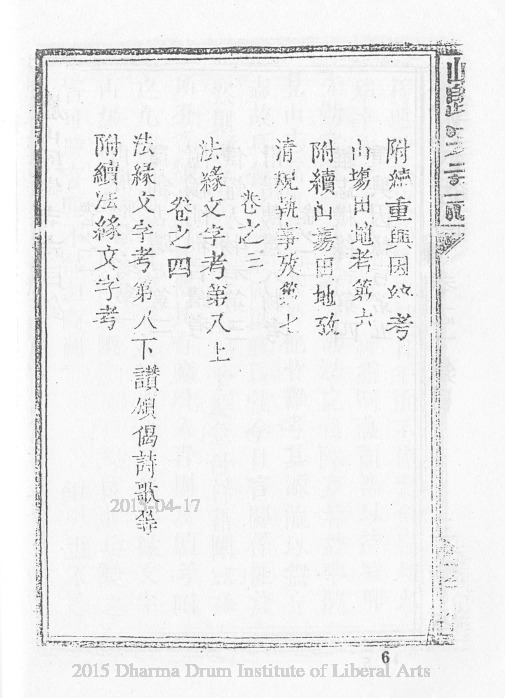 附續重興因緣考
山塲田地考第六
附續山塲田地攷
清規執事攷第七
卷之三
法緣文字考第八上
卷之四
法緣文字考第八下讃頌偈詩歌等
附續法緣文字考
2015-04-17
6
2015 Dharma Drum Institute of Liberal Arts